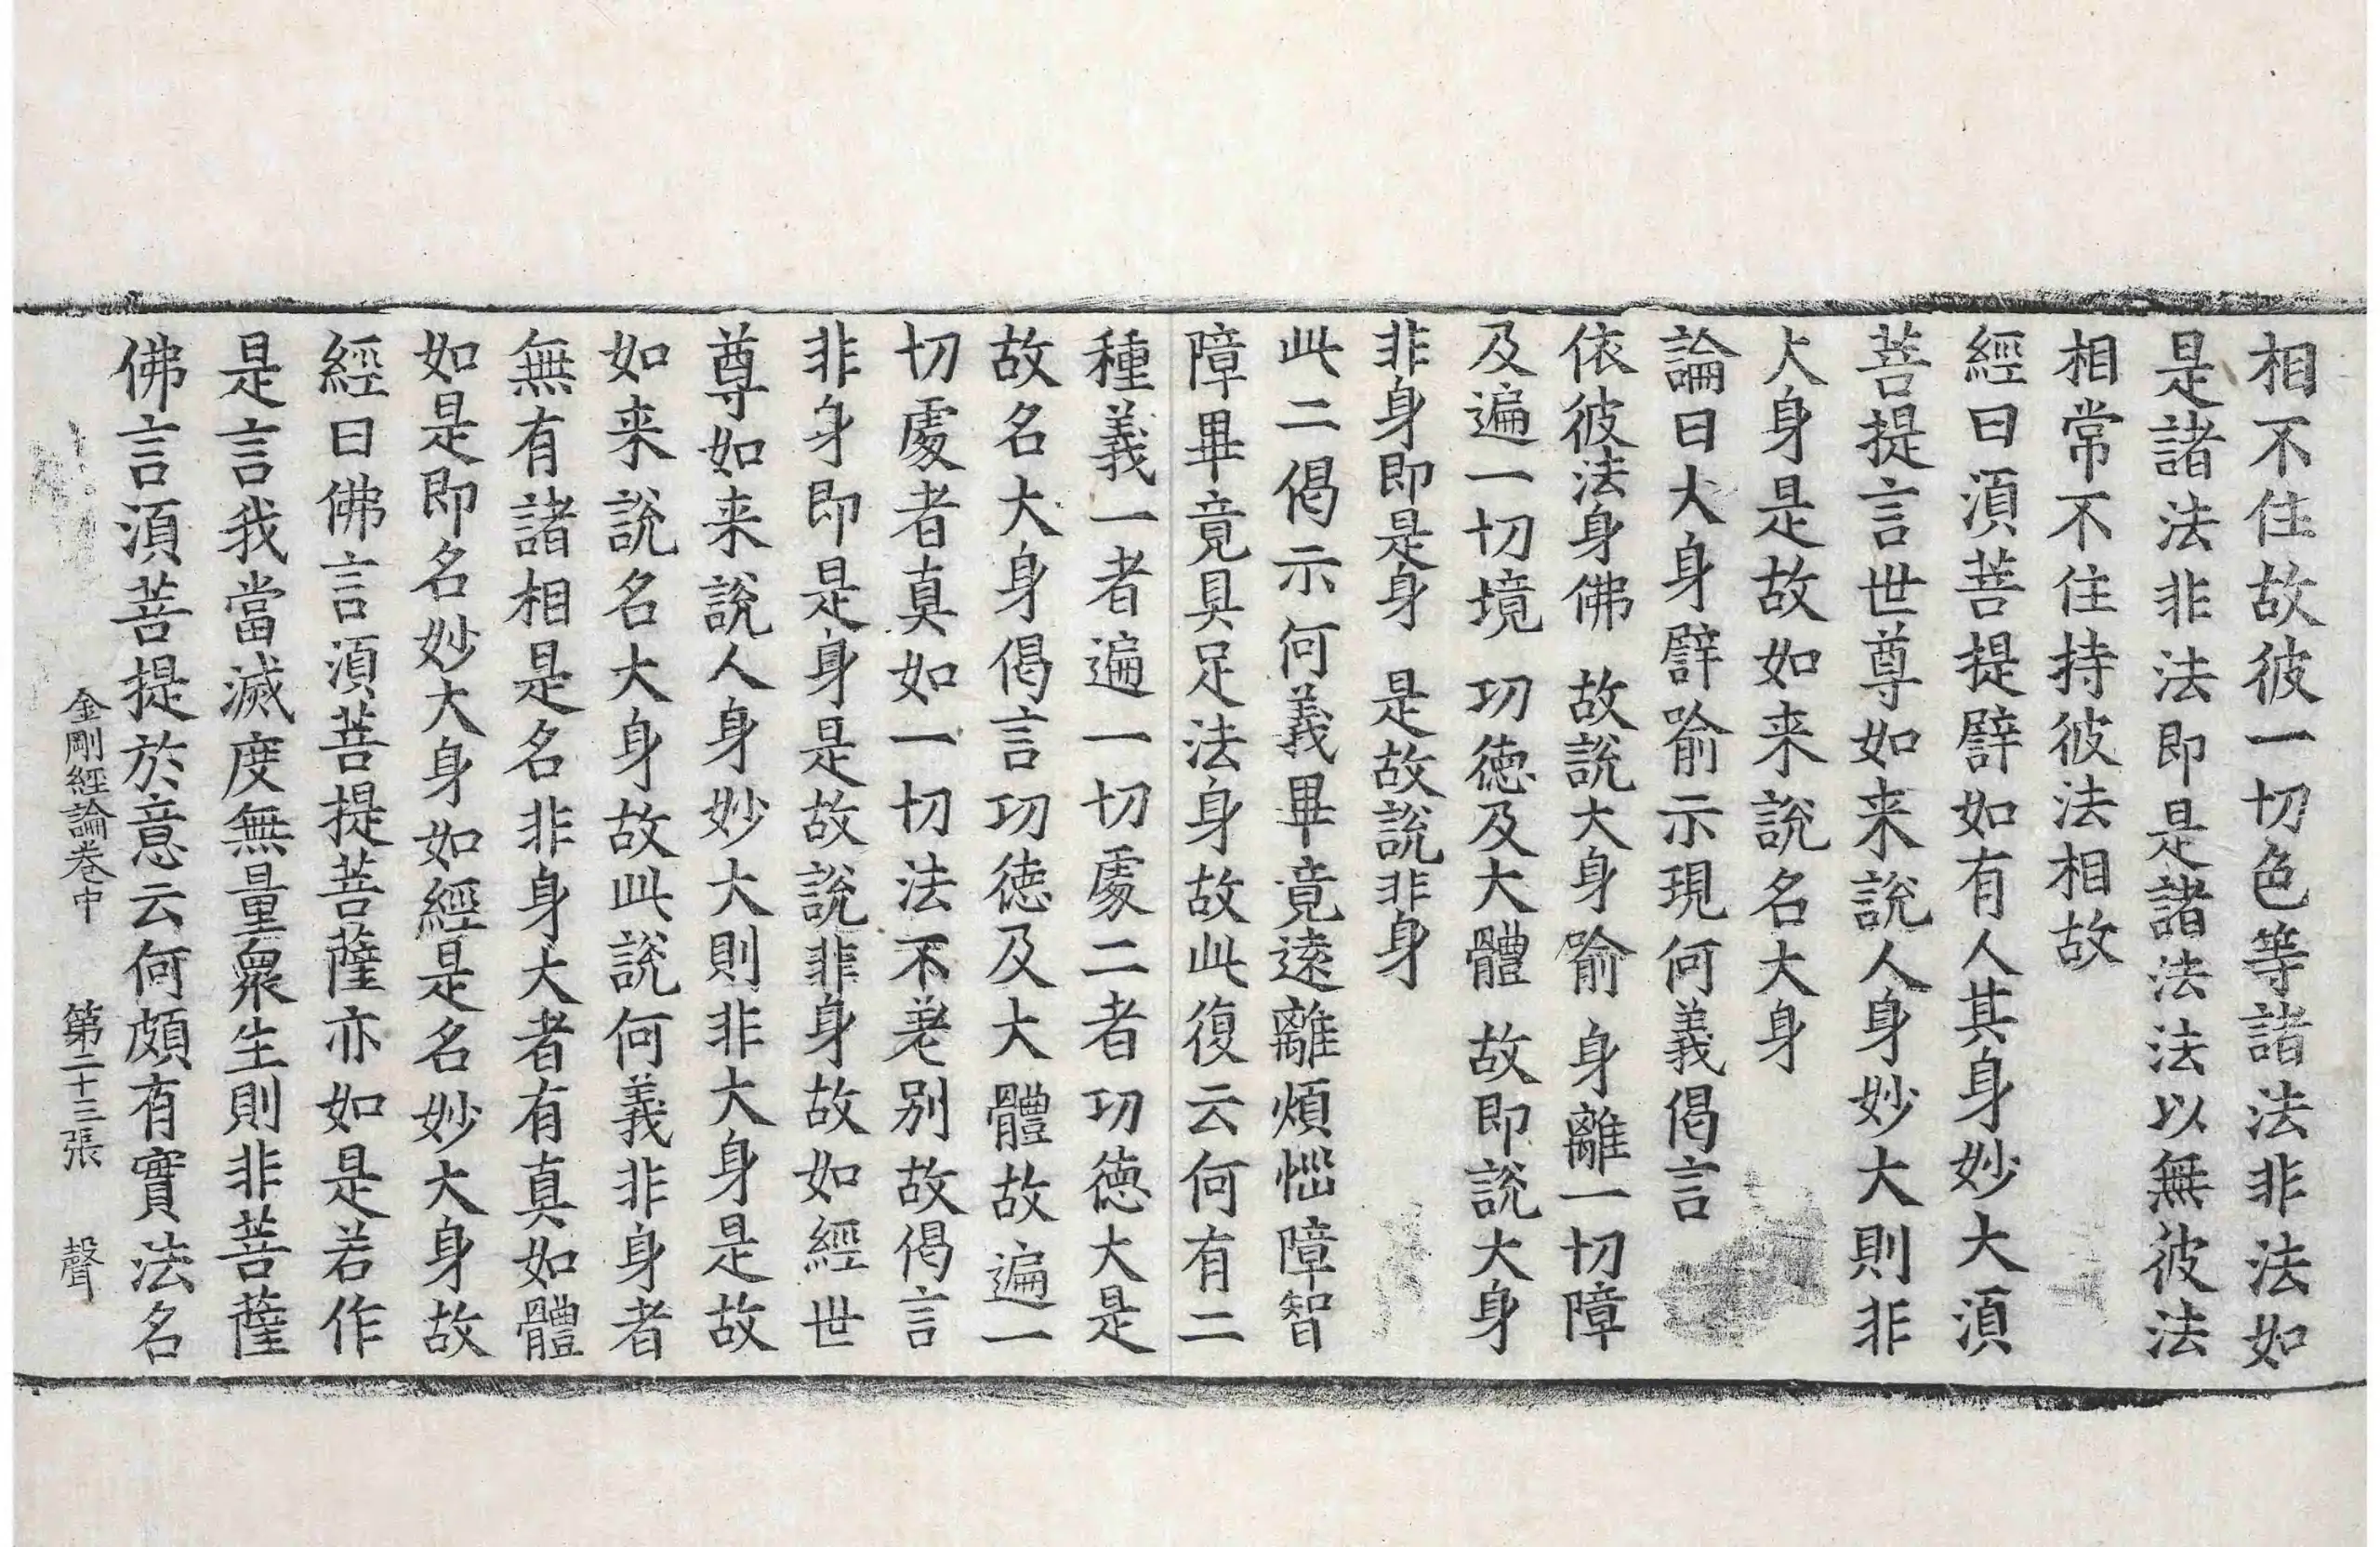 相不住故彼一切色等諸法非法如
是諸法非法即是諸法法以無彼法
相常不住持彼法相故
經曰湏菩提譬如有人其身妙大湏
菩提言世尊如来說人身妙大則非
大身是故如来說名大身
論曰大身譬喻示現何義偈言
依彼法身佛　故說大身喻　身離一切障
及遍一切境　功徳及大體　故即說大身
非身即是身　是故說非身
此二偈示何義畢竟遠離煩惱障智
障畢竟具足法身故此復云何有二
種義一者遍一切處二者功徳大是
故名大身偈言功徳及大體故遍一
切處者真如一切法不差别故偈言
非身即是身是故說非身故如經世
尊如来說人身妙大則非大身是故
如来說名大身故此說何義非身者
無有諸相是名非身大者有真如體
如是即名妙大身如經是名妙大身故
經曰佛言湏菩提菩薩亦如是若作
是言我當滅度無量衆生則非菩薩
佛言湏菩提於意云何頗有實法名
金剛經論卷中　第二十三張　聲